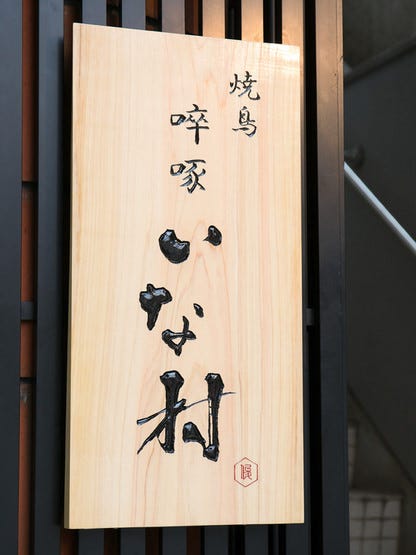 焼鳥
啐啄
いな村